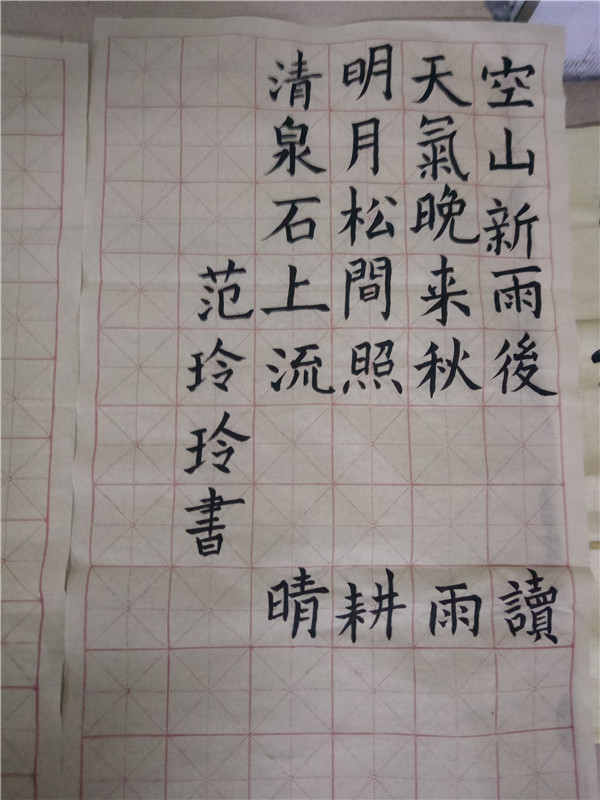 空山新雨後
天氣晚来秋
明月松間照
清泉石上流
范玲玲書
讀雨耕晴